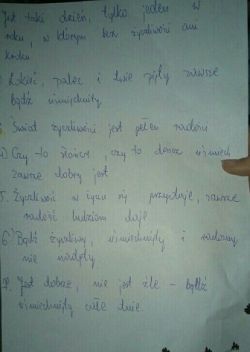 Jest taki dzień, tylko jeden w
roku, w którym bez życzliwości ani
kroku.
Łokieć, palec i dwie pięty zawsze
bądź uśmiechnięty
Świat życzliwości jest pełen radości
4) Czy to słońce, czy to deszcz uśmiech
zawsze dobry jest
5. Życzliwość w życiu się przydaje, zawsze
radość ludziom daje
6. Bądź życzliwy, uśmiechnięty i radosny
nie
7. Jest dobrze, nie jest źle - bądź
uśmiechnięty całe dnie.